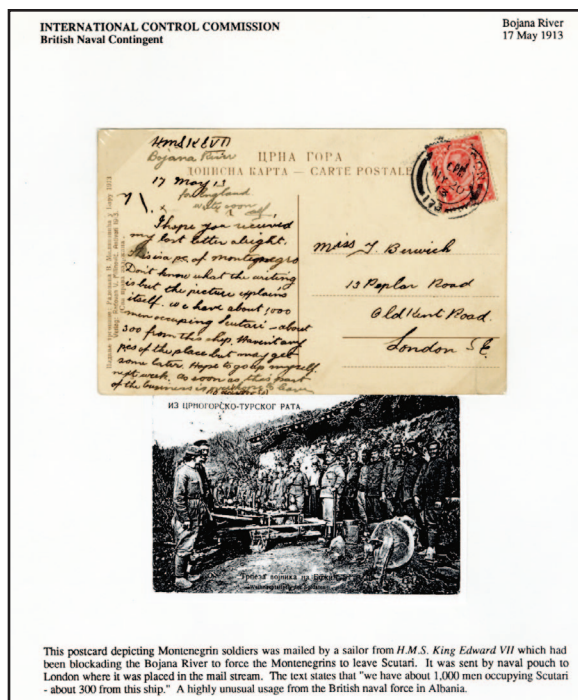 INTERNATIONAL CONTROL COMMISSION
British Naval Contingent
Bojana River
17 May 1913
HMS KEVII
Bojana River
17 May 13
for England
ЦРНА ГОРА
ДОПИСНА КАРТА — CARTE POSTALE
I hope you received
my last letter alright.
This is a pc. of Montenegro
Don't know what the writing
is but the picture explains
itself. We have about 1,000
men occupying Scutari - about
300 from this ship. Haven't any
pcs of the place but may get
some later. Hope to go up myself
next week. As soon as this part
of the business is
Miss J. Berwick
13 Poplar Road
Old Kent Road.
London S.E.
173
ИЗ ЦРНОГОРСКО-ТУРСКОГ РАТА
Трпеза војника на
This postcard depicting Montenegrin soldiers was mailed by a sailor from H.M.S. King Edward VII which had
been blockading the Bojana River to force the Montenegrins to leave Scutari. It was sent by naval pouch to
London where it was placed in the mail stream. The text states that "we have about 1,000 men occupying Scutari
- about 300 from this ship." A highly unusual usage from the British naval force in Albania.